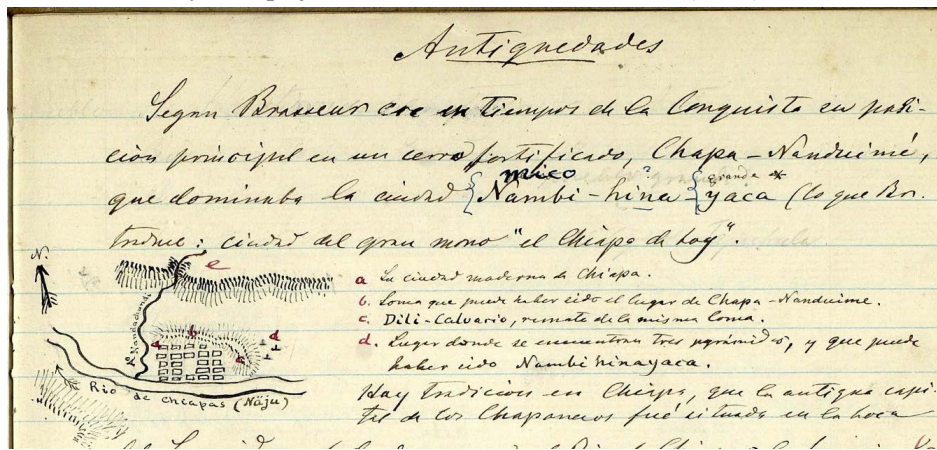 Antiguedades
Segun Brasseur era en tiempos de la Conquista su posi-
cion principal en un cerro fortificado, Chapa-Nanduimé,
mico ? grande *
que dominaba la ciudad { Nambi-hina { yaca (lo que Br.
traduce: ciudad del gran mono "el Chiapa de hoy".
N.
e
a La ciudad moderna de Chiapa.
b. Loma que puede haber sido el lugar de Chapa-Nanduime.
c. Dili-Calvario, remate de la misma loma.
d. Lugar donde se encuentran tres pyrámides, y que puede
haber sido Nambihinayaca.
b
a
d
c
Rio de Chiapas (Näju)
Hay tradicion en Chiapa, que la antigua capi-
tal de los Chapanecos fué situada en la boca